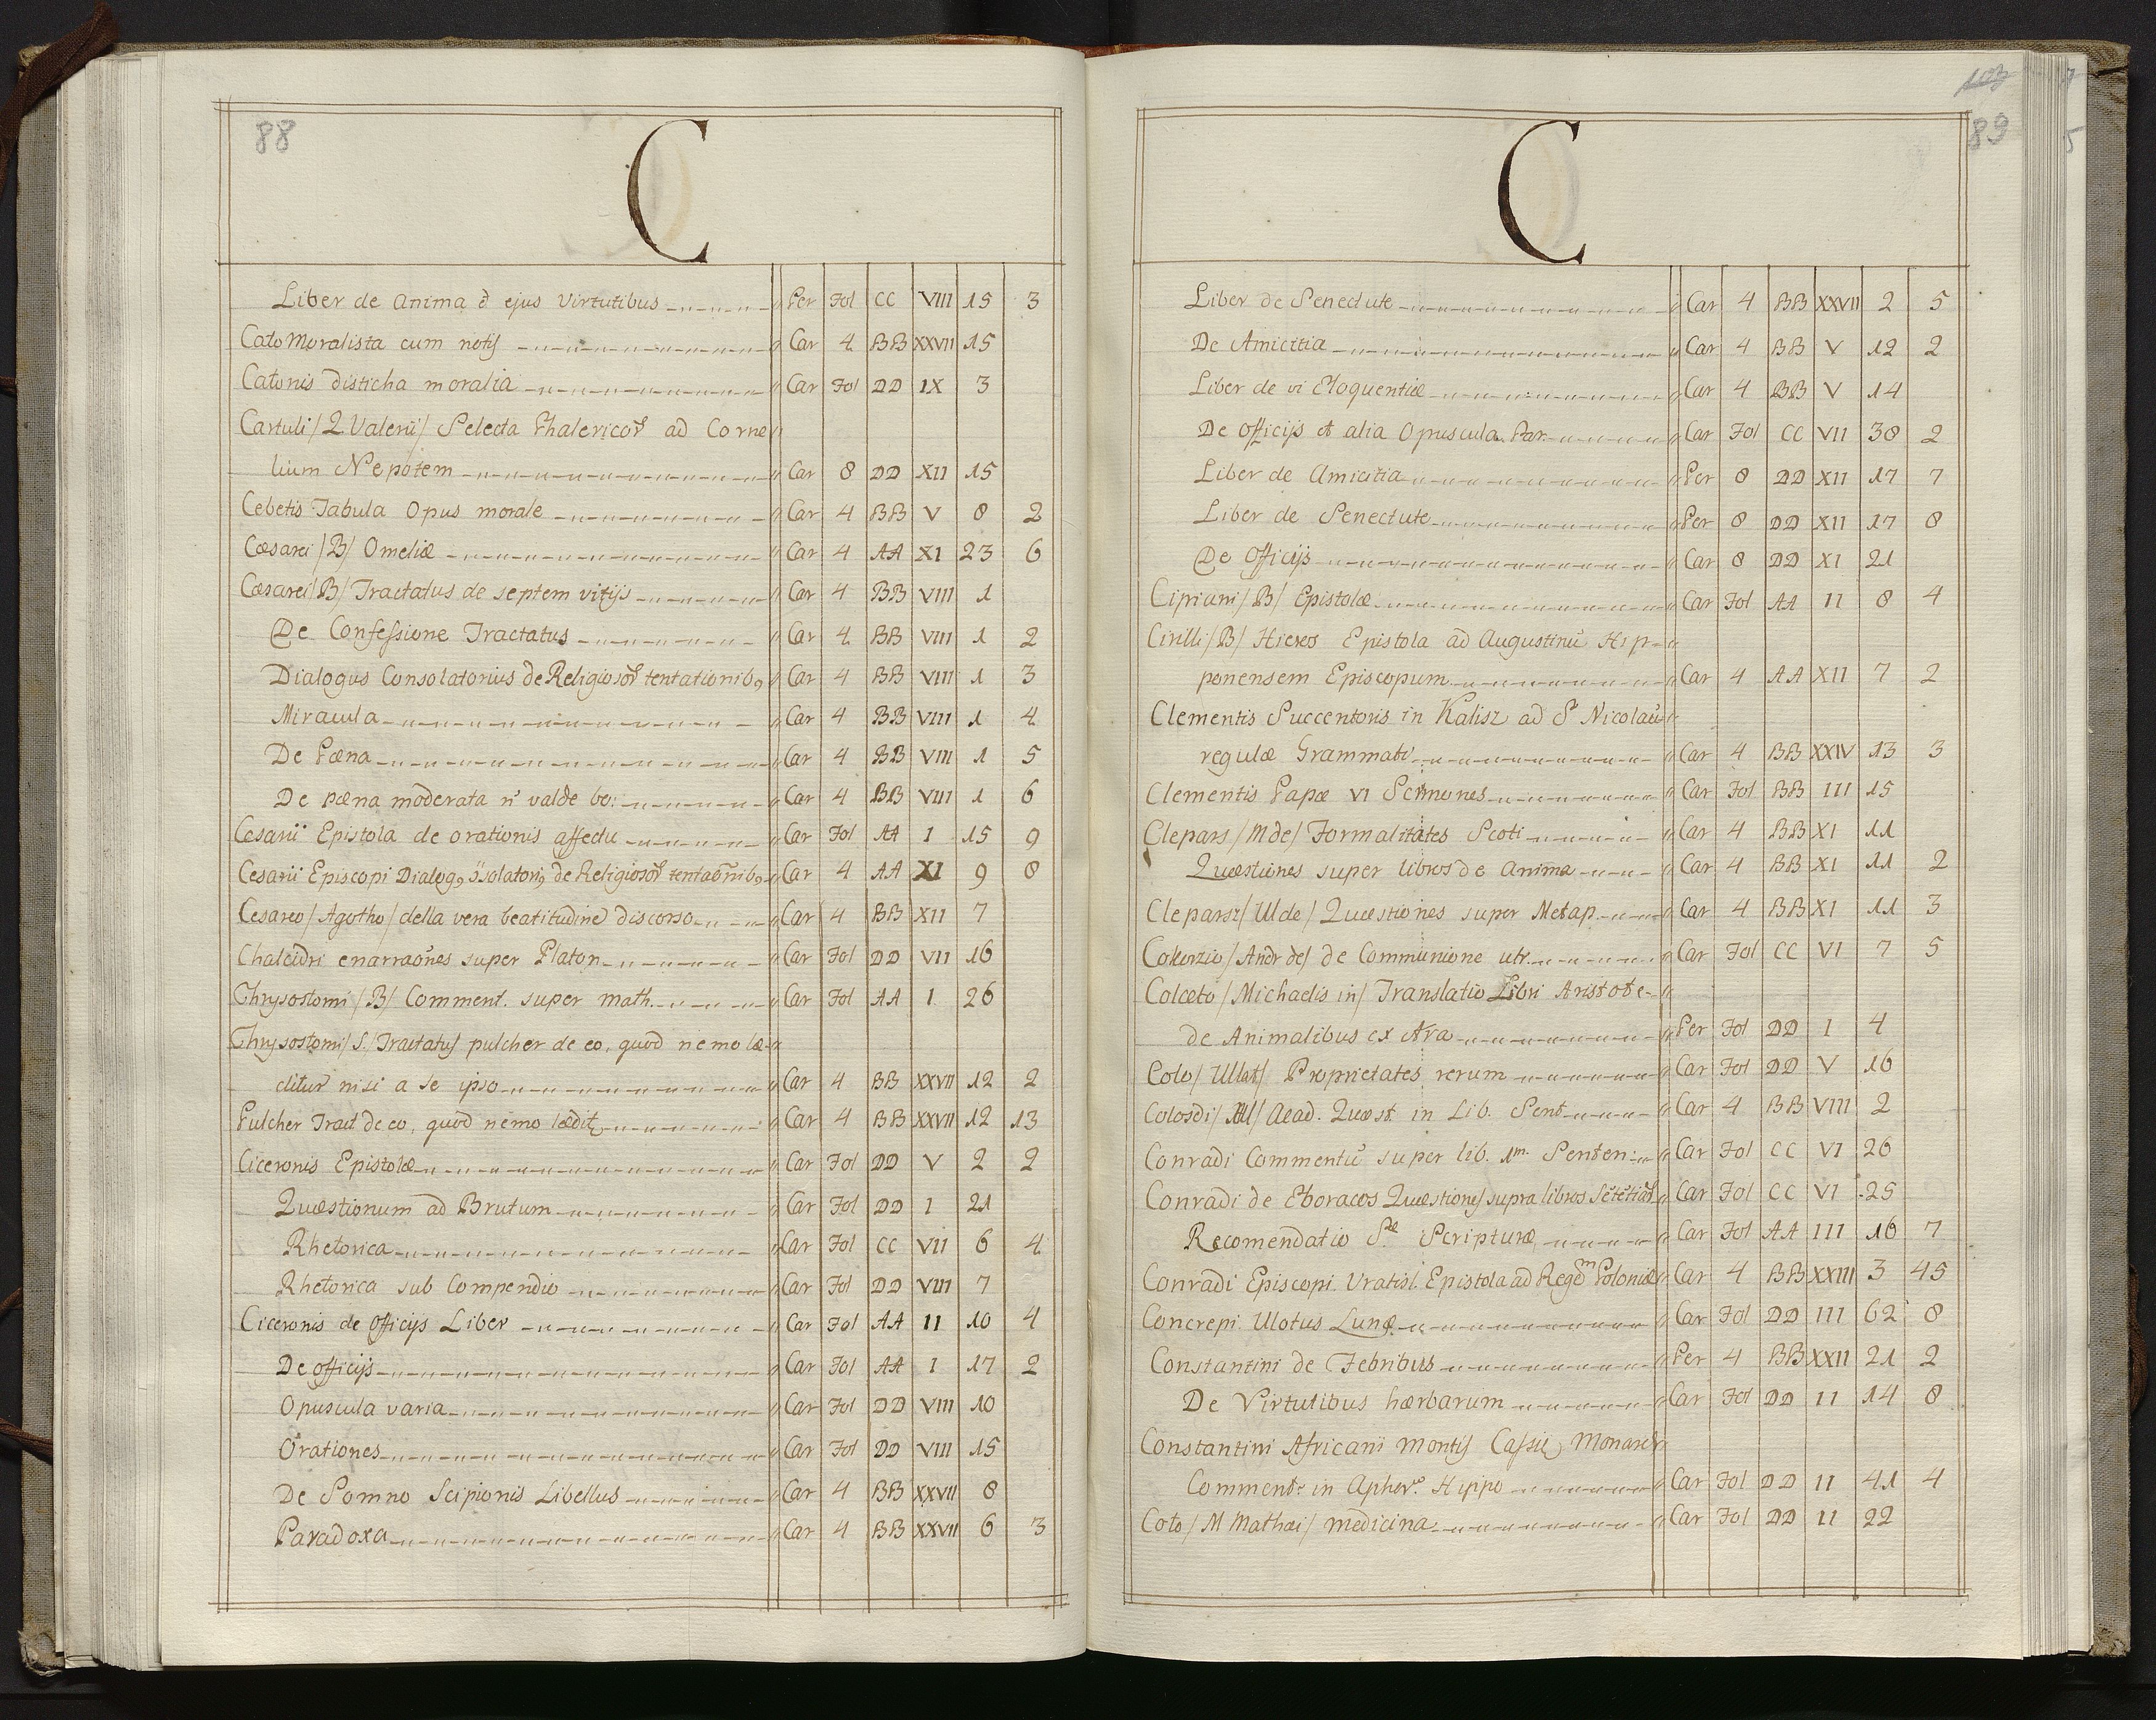 88
C
Liber de anima et ejus virtutibus Per Fol CC VIII 15 3
Cato Moralista cum notis Car 4 BB XXVII 15
Catonis disticha moralia Car Fol DD IX 3
Cartuli / Q. Valerii / Selecta Phalericor ad Corne
lium Nepotem Car 8 DD XII 15
Cebetis Tabula Opus morale Car 4 BB V 8 2
Cæsarei /B/ Omeliæ Car 4 AA XI 23 6
Cæsarei /B/ Tractatus de septem vitijs Car 4 BB VIII 1
De Confessione Tractatus Car 4 BB VIII 1 2
Dialogus Consolatorius de Religiosor tentationib9 Car 4 BB VIII 1 3
Miracula Car 4 BB VIII 1 4
De Pæna Car 4 BB VIII 1 5
De pæna moderata n valde be: Car 4 BB VIII 1 6
Cesarii Epistola de orationis affectu Car Fol AA I 15 9
Cesarii Episcopi Dialog9 ɔ̃solatori9 de Religiosor tentaõnib9 Car 4 AA XI 9 8
Cesareo / Agotho / della vera beatitudine discorso Car 4 BB XII 7
Chalcidri enarraões super Platon Car Fol DD VII 16
Chrysostomi /B/ Comment. super math. Car Fol AA I 26
Chrysostomi /S./ Tractatus pulcher de eo, quod nemo læ-
ditur nisi a se ipso Car 4 BB XXVII 12 2
Pulcher Tract de eo, quod nemo lædit Car 4 BB XXVII 12 13
Ciceronis Epistolæ Car Fol DD V 2 2
Quæstionum ad Brutum Car Fol DD I 21
Rhetorica Car Fol CC VII 6 4
Rhetorica sub Compendio Car Fol DD VIII 7
Ciceronis de officijs Liber Car Fol AA II 10 4
De officijs Car Fol AA I 17 2
Opuscula varia Car Fol DD VIII 10
Orationes Car Fol DD VIII 15
De Somno Scipionis Libellus Car 4 BB XXVII 8
Paradoxa Car 4 BB XXVII 6 3
103
89
C
Liber de Senectute Car 4 BB XXVII 2 5
De Amicitia Car 4 BB V 12 2
Liber de vi Eloquentiæ Car 4 BB V 14
De officijs et alia Opuscula Par. Car Fol CC VII 38 2
Liber de Amicitia Per 8 DD XII 17 7
Liber de Senectute Per 8 DD XII 17 8
De officijs Car 8 DD XI 21
Cipriani /B/ Epistolæ Car Fol AA II 8 4
Cirilli /B/ Hieros Epistola ad Augustinũ Hip-
ponensem Episcopum Car 4 AA XII 7 2
Clementis Succentoris in Kalisz ad S Nicolaũ
regulæ Grammati Car 4 BB XXIV 13 3
Clementis Papæ VI Sermones Car Fol BB III 15
Clepars /M de/ Formalitates Scoti Car 4 BB XI 11
Quæstiones super libros de anima Car 4 BB XI 11 2
Cleparsz /M de/ Quæstiones super Metap. Car 4 BB XI 11 3
Cokorzio /Andr de/ de Communione utr. Car Fol CC VI 7 5
Colceto /Michaelis in/ Translatio Libri Aristote-
de Animalibus ex Ara Per Fol DD I 4
Colo /Mat/ Proprietates rerum Car Fol DD V 16
Colosdi /M/ Acad. Quæst in Lib. Sent Car 4 BB VIII 2
Conradi Commentũ super lib. 1m. Senten: Car Fol CC VI 26
Conradi de Eboracos Quæstiones supra libros Sẽtẽtiar Car Fol CC VI 25
Recomendatio Sæ Scripturæ Car Fol AA III 16 7
Conradi Episcopi Vratisl. Epistola ad Regem Poloniæ Car 4 BB XXIII 3 45
Concrepi Motus Lunæ Car Fol DD III 62 8
Constantini de Febribus Per 4 BB XXII 21 2
De Virtutibus hærbarum Car Fol DD II 14 8
Constantini Africani montis Cassii Monach
Comment in Aphor. Hippo Car Fol DD II 41 4
Coto /M Mathæi/ medicina Car Fol DD II 22